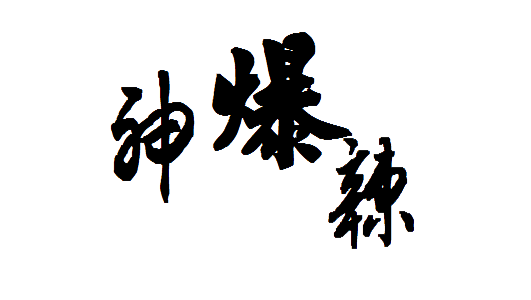 神爆辣